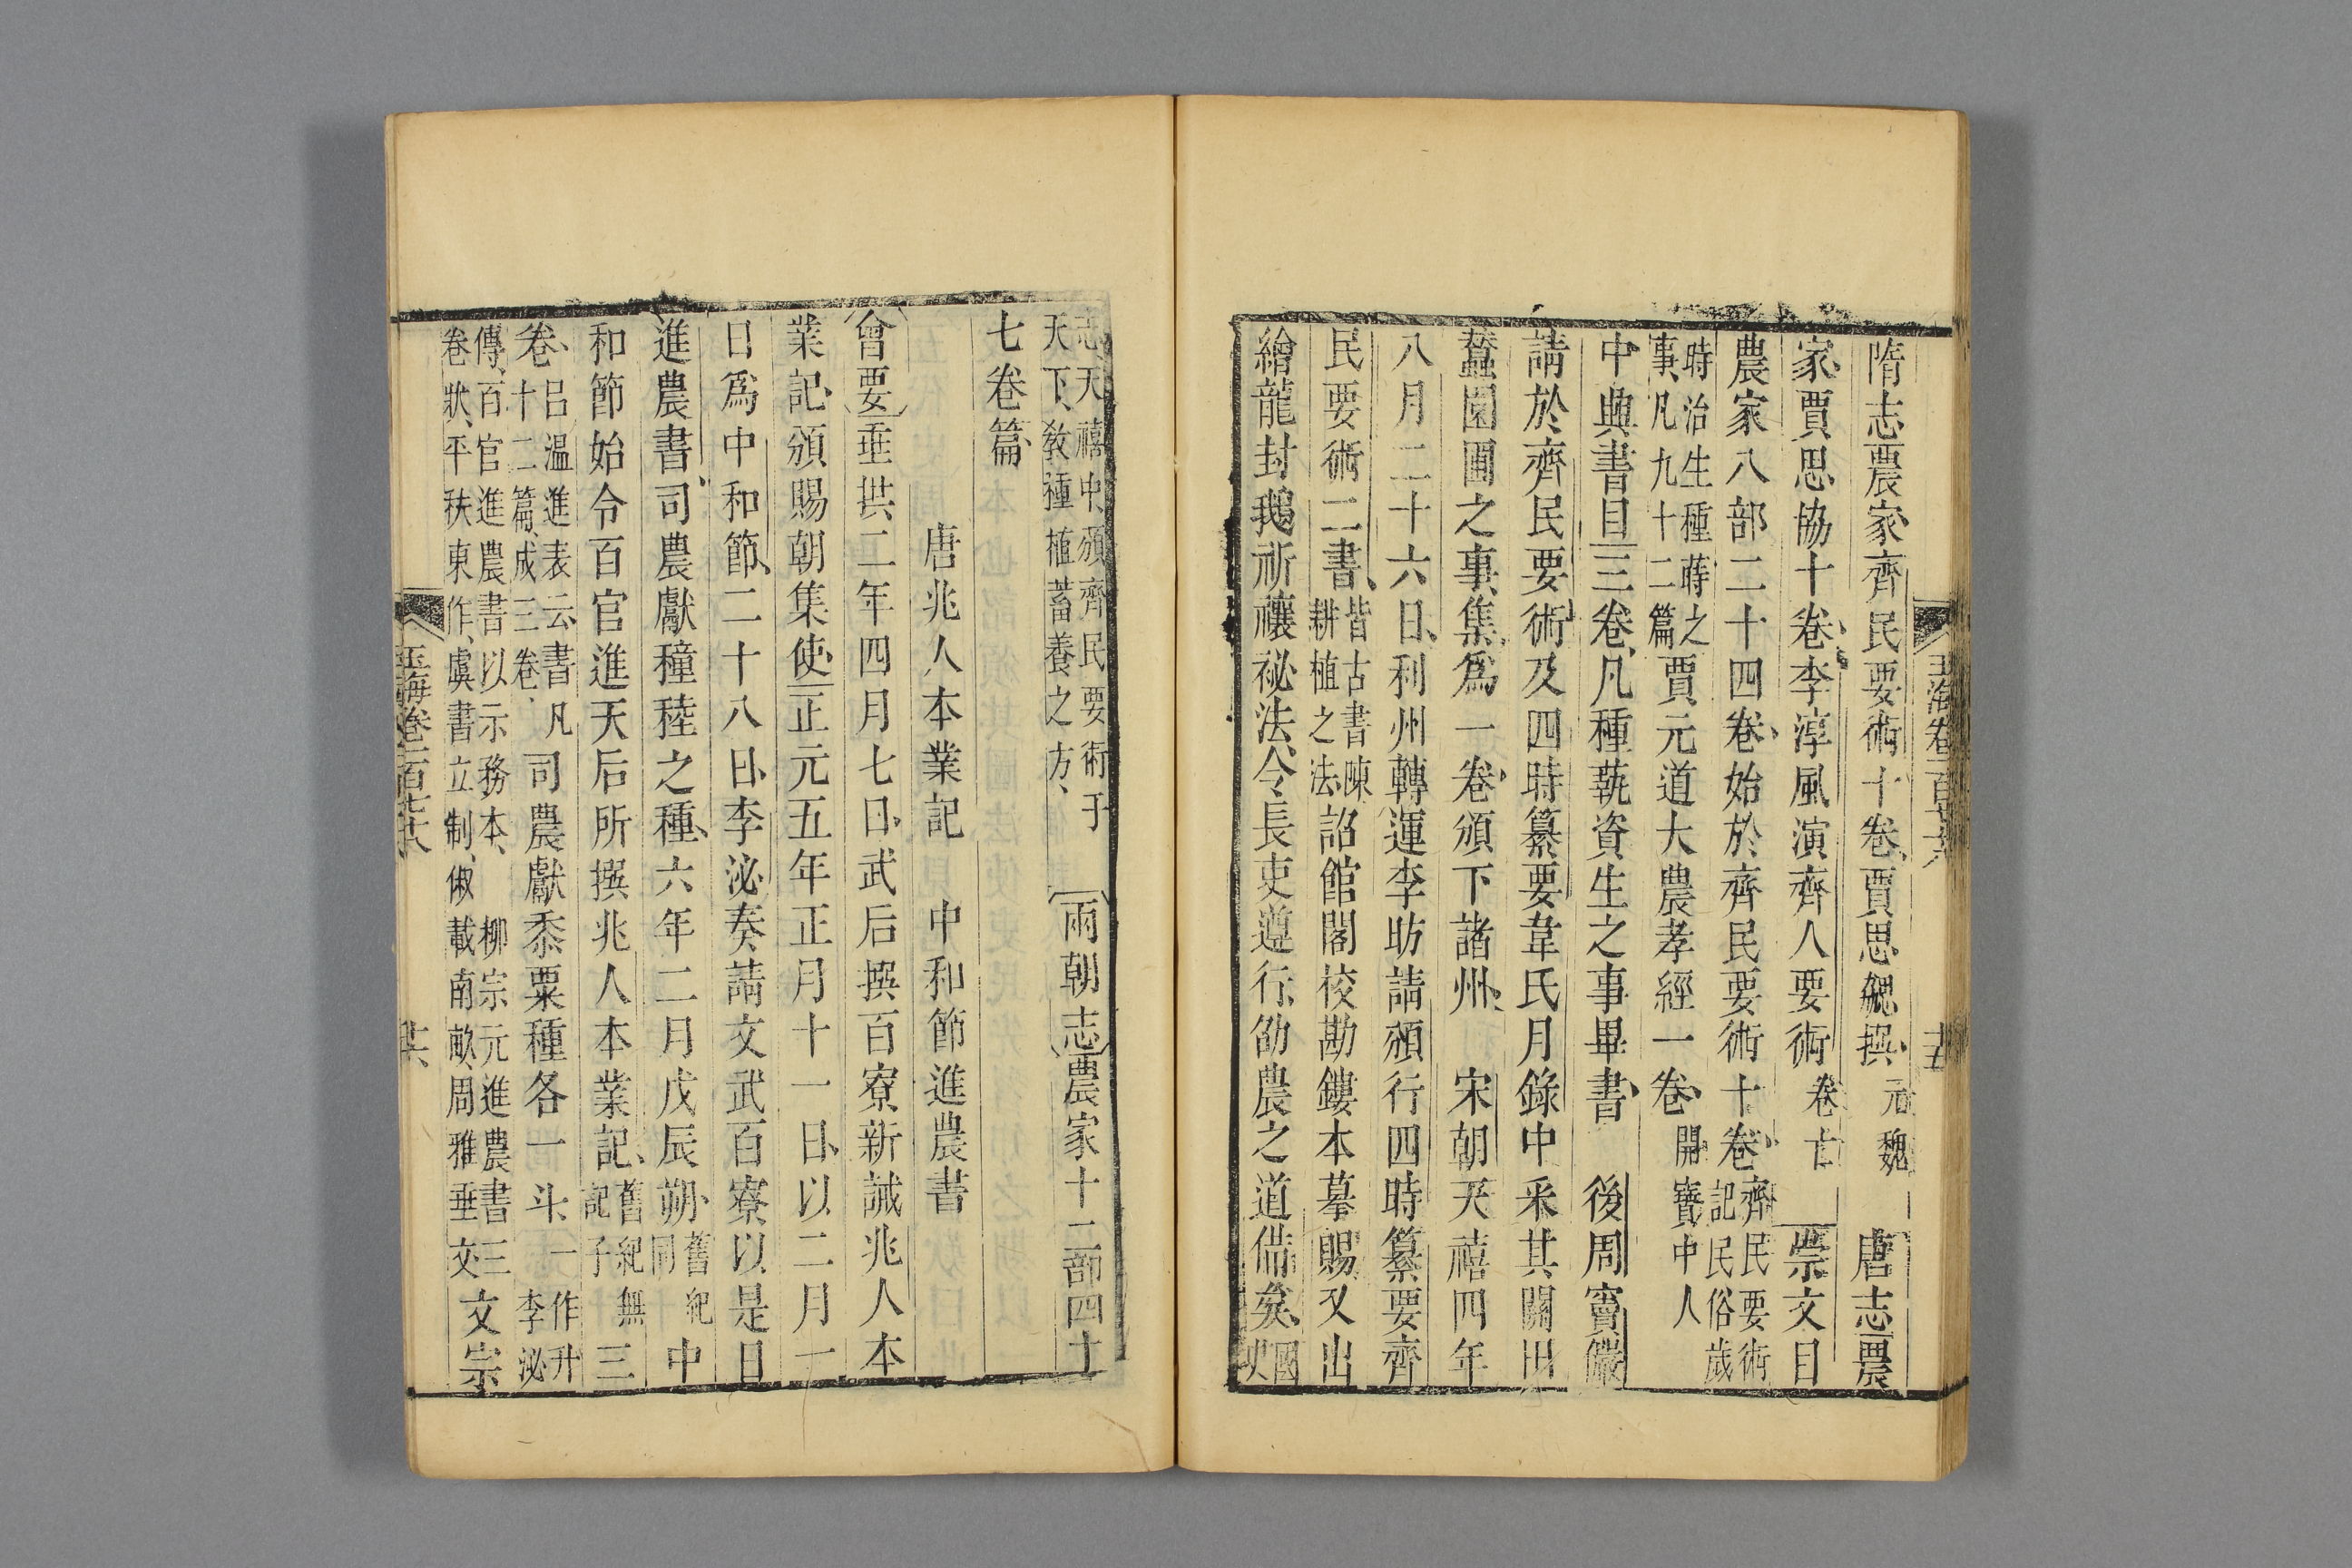 隋志農家齊民要術十卷賈思勰撰元魏 唐志農
家賈思協十卷李淳風演齊人要術卷亡 崇文目
農家八部二十四卷始於齊民要術十卷齊民要術記民俗歲
時治生種蒔之事凡九十二篇賈元道大農孝經一卷開寶中人
中興書目三卷凡種蓺資生之事畢書 後周竇儼
請於齊民要術及四時纂要韋氏月錄中采其關田
蠶園圃之事集爲一卷頒下諸州 宋朝天禧四年
八月二十六日利州轉運李昉請頒行四時纂要齊
民要術二書皆古書陳耕植之法詔館閣校勘鏤本摹賜又出
繪龍封鵝祈禳祕法令長吏遵行勸農之道備矣國史
志天禧中頒齊民要術于天下教種植蓄養之方 兩朝志農家十二部四十
七卷篇
唐兆人本業記 中和節進農書
會要垂拱二年四月七日武后撰百寮新誡兆人本
業記頒賜朝集使正元五年正月十一日以二月一
日爲中和節二十八日李泌奏請文武百寮以是日
進農書司農獻穜稑之種六年二月戊辰朔舊紀同中
和節始令百官進天后所撰兆人本業記舊紀無記子三
卷呂溫進表云書凡十二篇成三卷司農獻黍粟種各一斗一作升李泌
傳百官進農書以示務本 柳宗元進農書三卷狀平秩東作虞書立制俶載南畝周雅垂文文宗
玉海卷一百七十八
十五
玉海卷一百七十八
十六